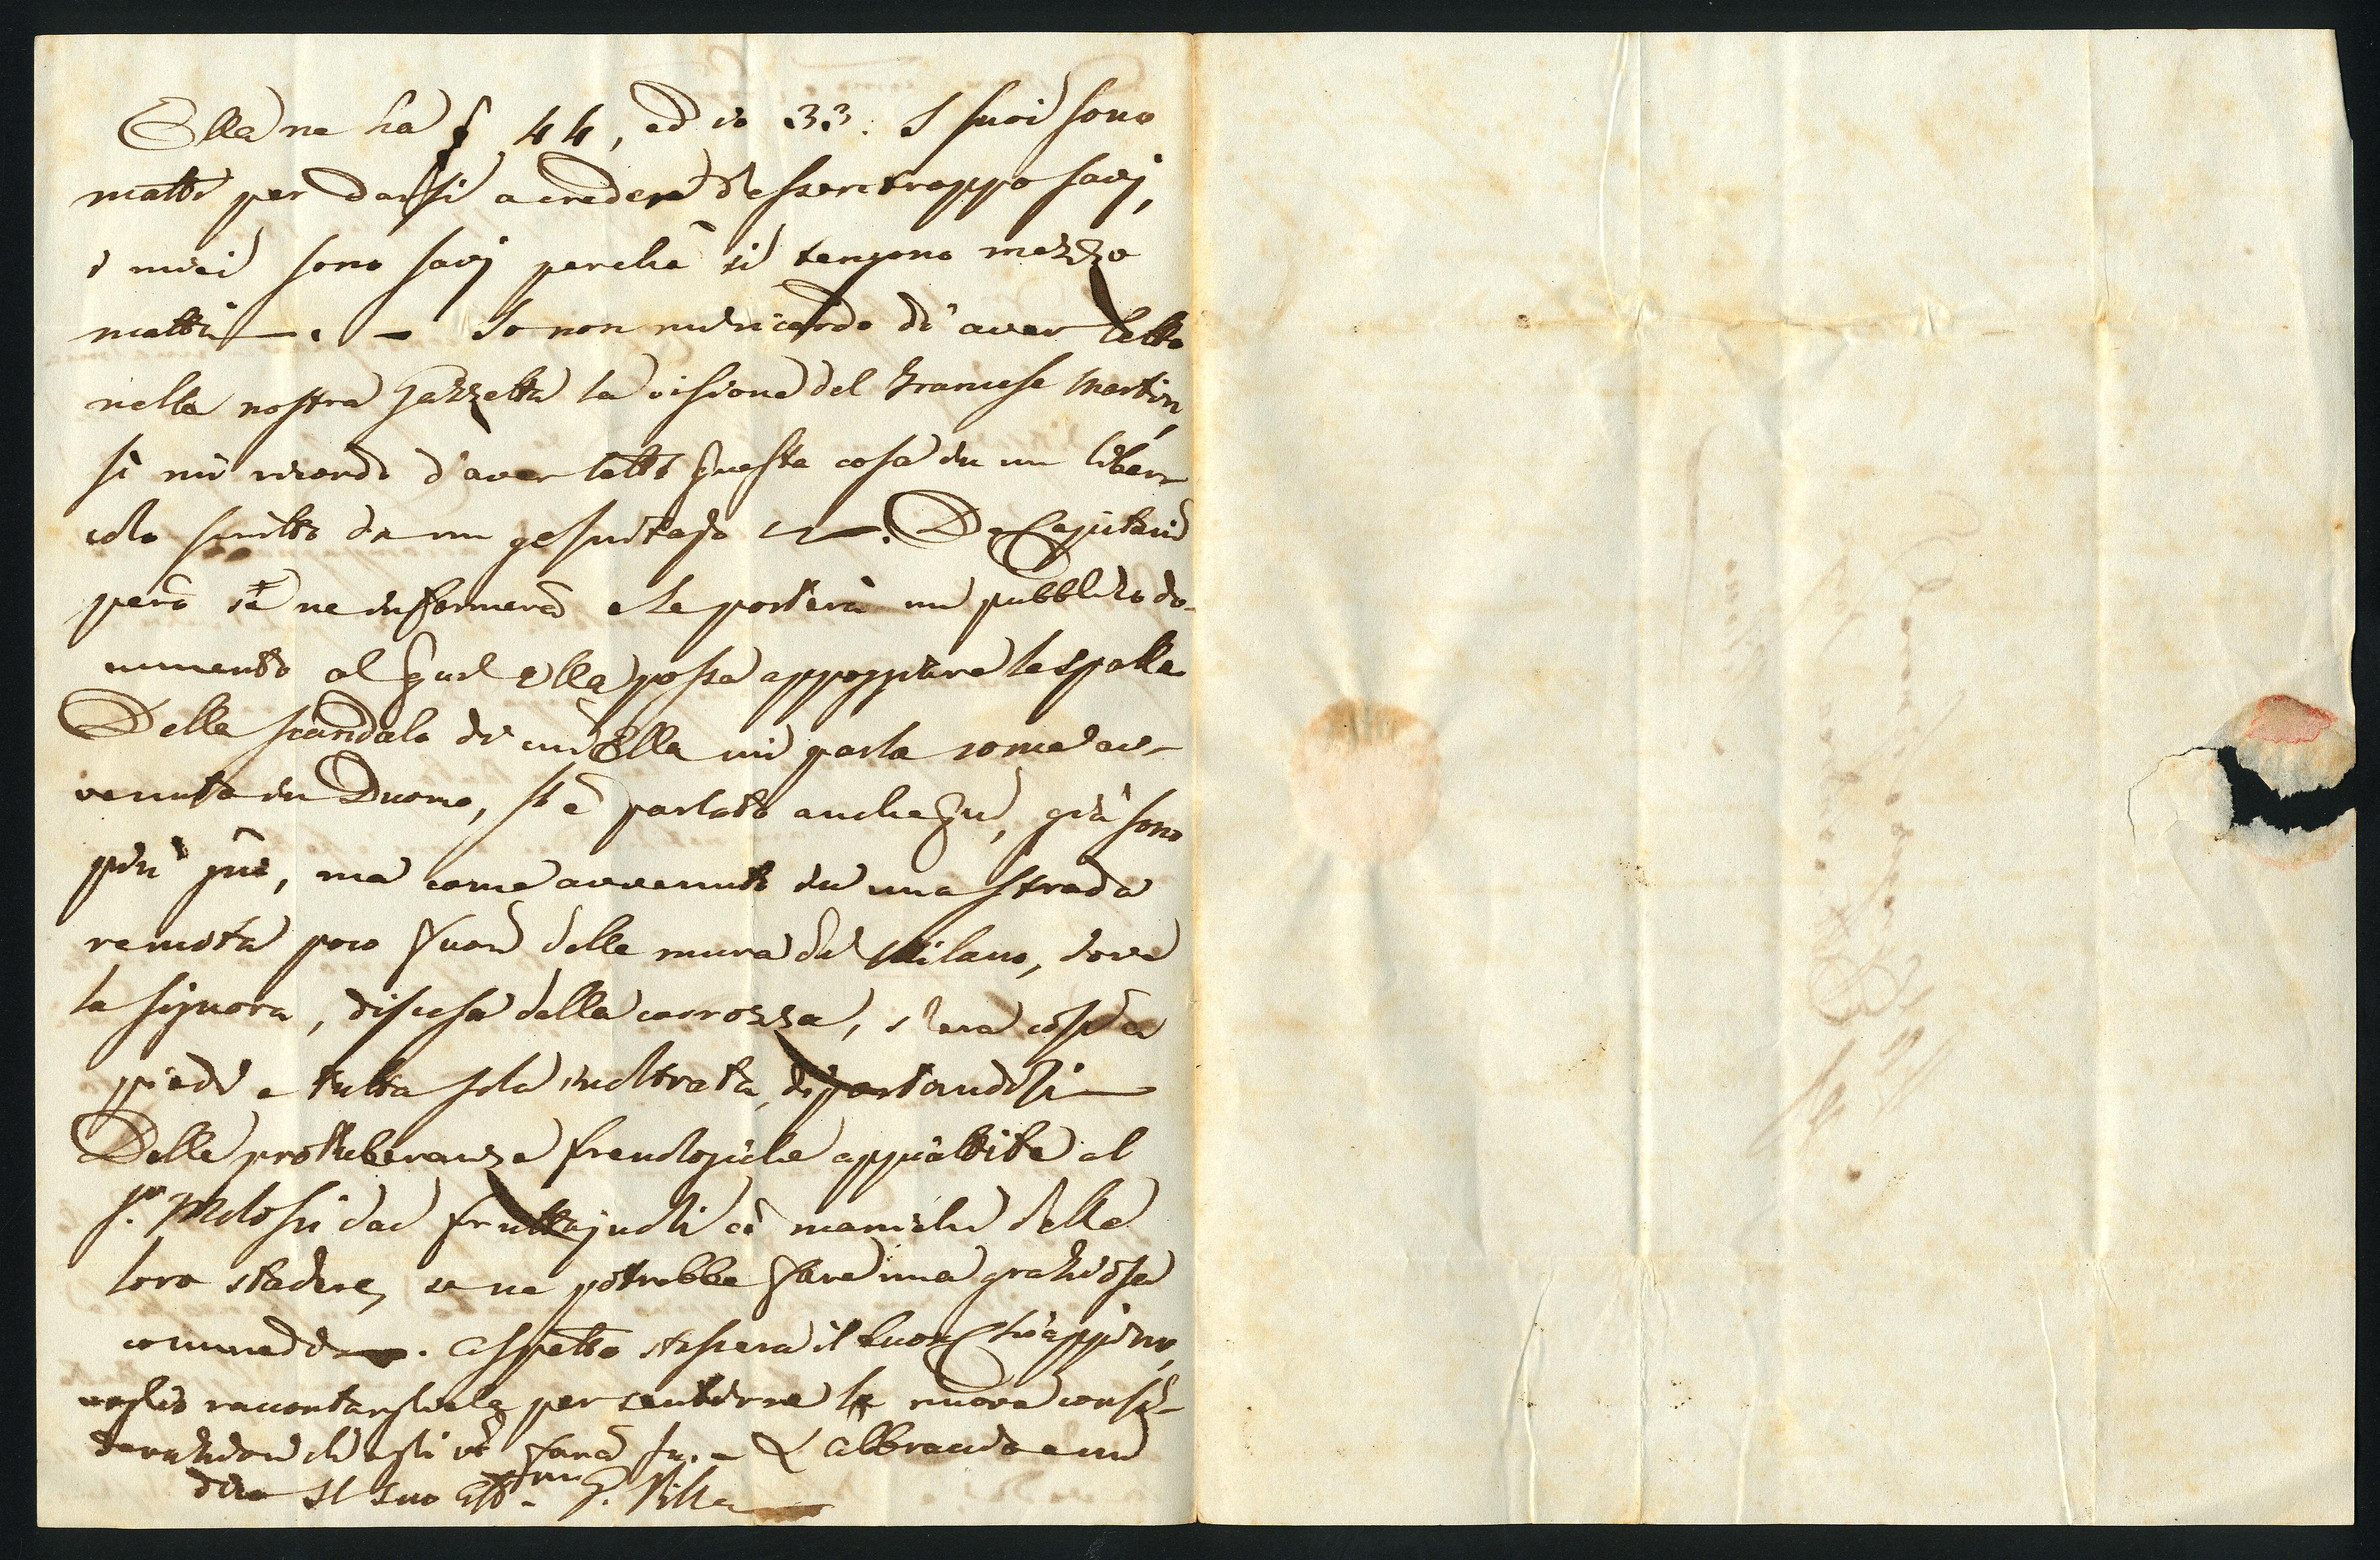 Ella ne ha 44, ed io 33. I suoi sono
matti per darsi a creder d'essere troppo savj,
i miei sono savj perchè si tengono mezzo
matti —. — Io non mi ricordo di aver letto
nella nostra Gazzetta la visione del Francese Martin,
sì mi ricordo d'aver letto questa cosa in un liber-
colo scritto da un gesuitajo. De Capitani
però se ne informerà e Le porterà un pubblico do-
cumento al qual Ella possa appoggiare le spalle.
Dello scandalo di cui Ella mi parla come av-
venuto in Duomo, si è parlato anche qui, già sono
più, ma come avvenuto in una strada
remota poco fuori delle mura di Milano, dove
la signora, discesa dalla carrozza, s'era così a
piedi e tutta sola inoltrata, diportandosi —
Delle protuberanze frenologiche appiattite al
Sr. Molossi dai fruttajuoli coi manichi delle
loro stadere, se ne potrebbe fare una graziosa
commedia —. Aspetto stassera il buon Chiappino,
voglio raccontargliela per sentirne le nuove consi-
derazioni ch'egli vi farà su. — L'abbraccio e mi
dico Il suo Aff.mo G. Villa